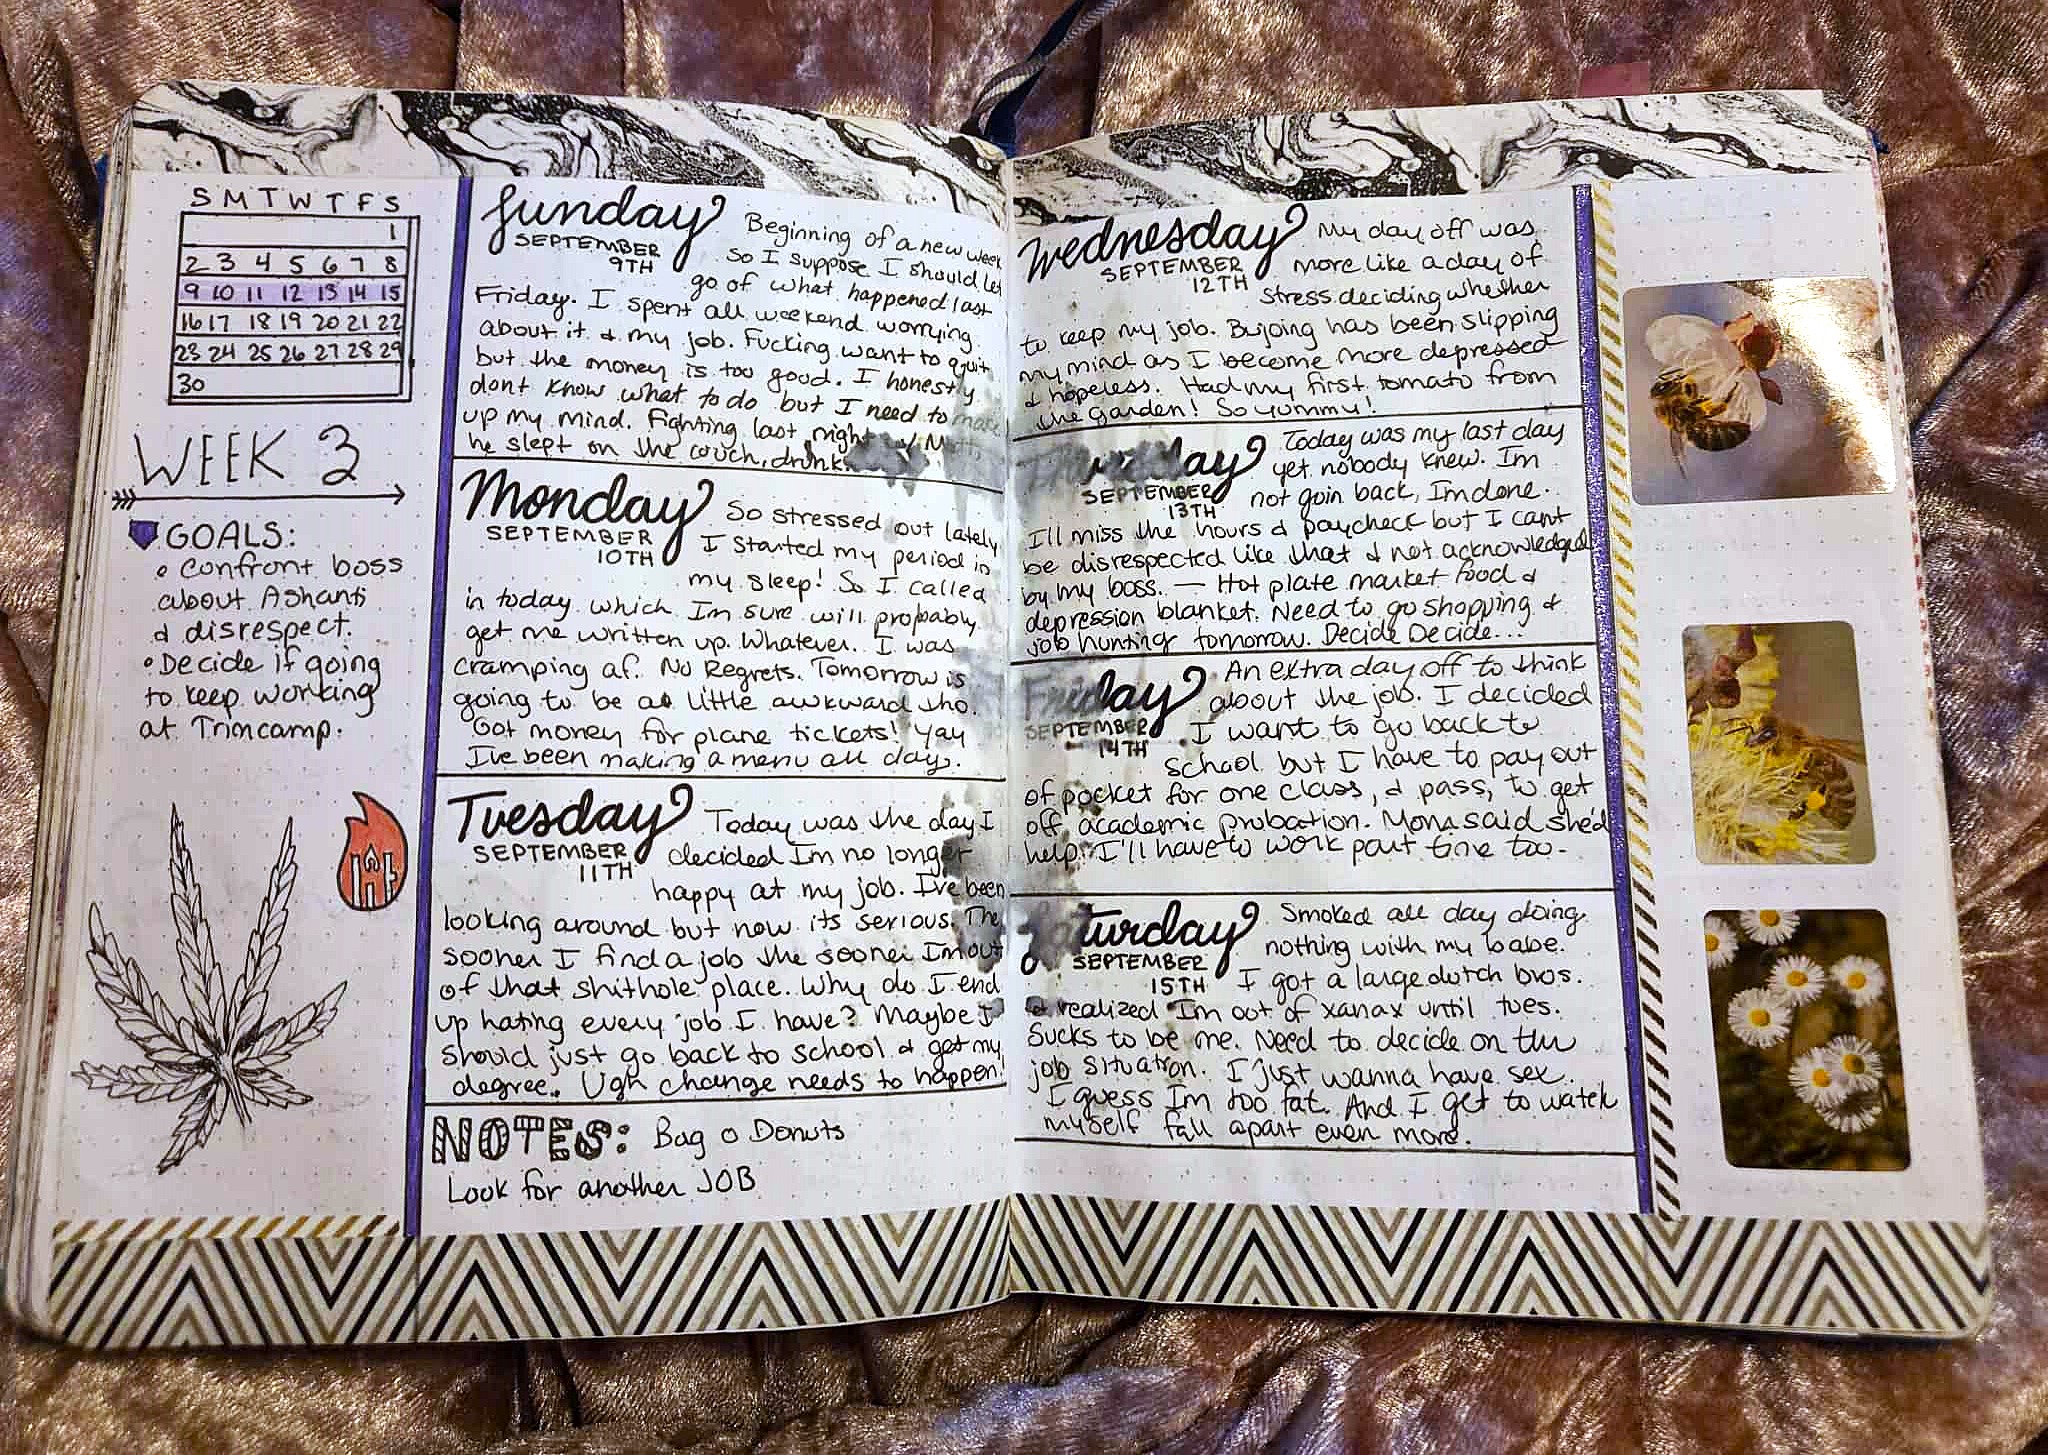 S M T W T F S
1
2 3 4 5 6 7 8
9 10 11 12 13 14 15
16 17 18 19 20 21 22
23 24 25 26 27 28 29
30
WEEK 3
GOALS:
• Confront boss
about Ashanti
& disrespect.
• Decide if going
to keep working
at Trimcamp.
Sunday
SEPTEMBER
9TH
Beginning of a new week
so I suppose I should let
go of what happened last
Friday. I spent all weekend worrying
about it & my job. Fucking want to quit
but the money is too good. I honestly
dont know what to do but I need to make
up my mind. Fighting last night
he slept on the couch, drunk.
Monday
SEPTEMBER
10TH
So stressed out lately
I started my period in
my sleep! So I called
in today which I'm sure will probably
get me written up. Whatever. I was
cramping af. No Regrets. Tomorrow is
going to be a little awkward tho.
Got money for plane tickets! Yay
I've been making a menu all day.
Tuesday
SEPTEMBER
11TH
Today was the day I
decided Im no longer
happy at my job. I've been
looking around but now its serious. The
sooner I find a job the sooner Im out
of that shithole place. Why do I end
up hating every job I have? Maybe I
should just go back to school & get my
degree. Ugh change needs to happen!
NOTES: Bag o Donuts
Look for another JOB
Wednesday
SEPTEMBER
12TH
My day off was
more like a day of
stress deciding whether
to keep my job. Bujoing has been slipping
my mind as I become more depressed
& hopeless. Had my first tomato from
the garden! So yummy!
Thursday
SEPTEMBER
13TH
Today was my last day
yet nobody knew. Im
not goin back, Im done.
I'll miss the hours & paycheck but I cant
be disrespected like that & not acknowledged
by my boss. — Hot plate market food &
depression blanket. Need to go shopping &
job hunting tomorrow. Decide Decide...
Friday
SEPTEMBER
14TH
An extra day off to think
about the job. I decided
I want to go back to
school but I have to pay out
of pocket for one class, & pass, to get
off academic probation. Mom said she'd
help. I'll have to work part time too.
Saturday
SEPTEMBER
15TH
Smoked all day doing
nothing with my babe.
I got a large dutch bros.
& realized I'm out of xanax until tues.
Sucks to be me. Need to decide on the
job situation. I just wanna have sex.
I guess Im too fat. And I get to watch
myself fall apart even more.